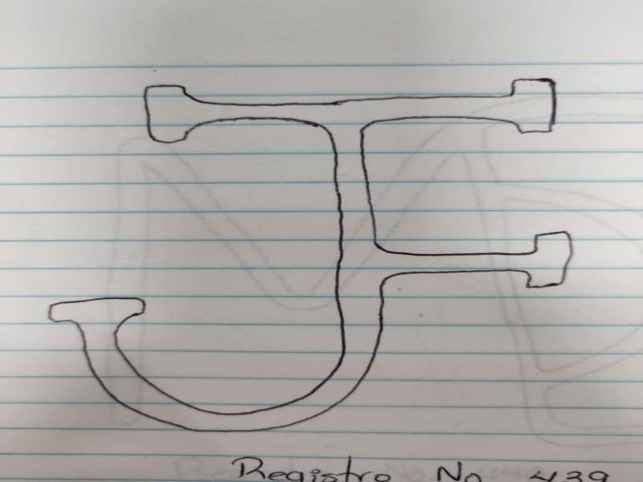 Registro No 439